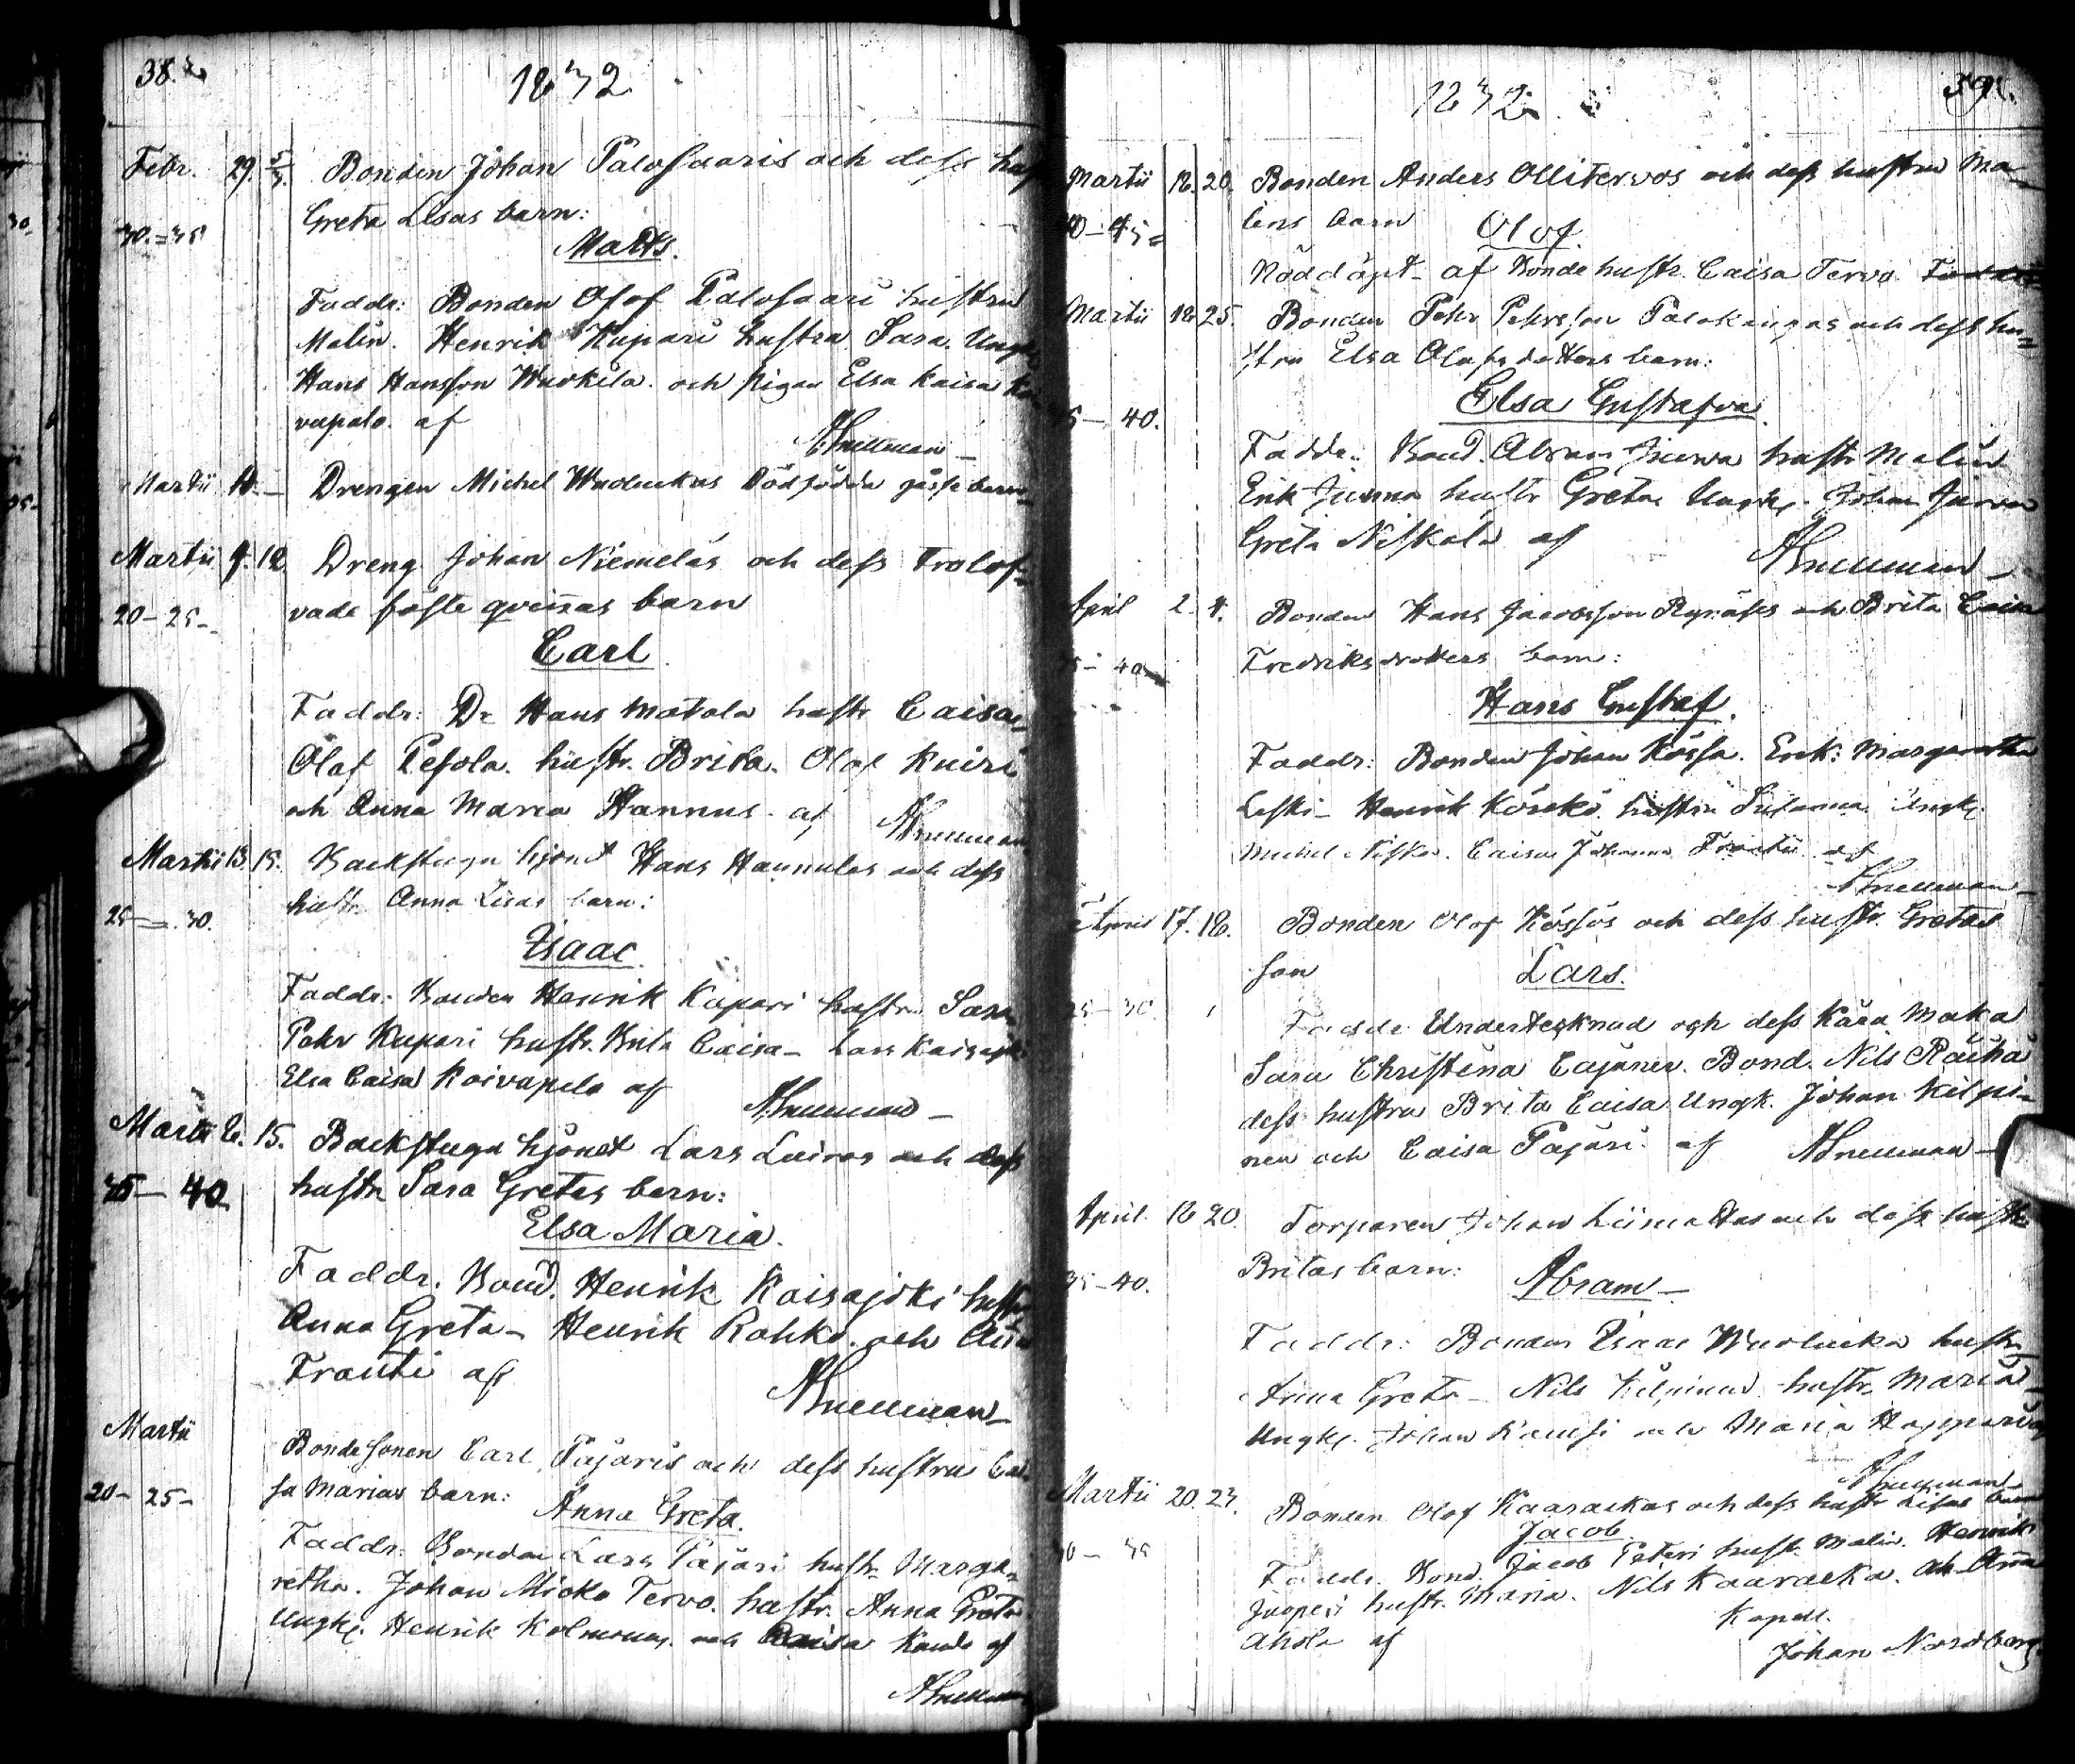 38.
1832
Febr. 29. 5/3. Bonden Johan Palosaaris och dess
Greta Lisas barn:
30.=35
Matts.
Faddr: Bonden Olof Palosaari hustru
Malin. Henrik Kupari hustru Sara. Ungk
Hans Hansson Wuokila. och pigan Elsa Kaisa Ko-
vapalo. af
ASnellman
Martii 10. Drengen Michel Wuoluckas Dödfödda gosse barn
Martii 9. 12. Dreng Johan Niemeläs och dess Trolof-
20-25- vade fäste qvinnas barn
Carl
Faddr: Dr Hans Matala hustr Caisa,
Olof Pesola. hustr. Brita. Olof Kuiri
och Anna Maria Hannus. af ASnellman
Martii 13. 15. Backstugu hjonet Hans Hannulas och dess
hustr. Anna Lisas barn:
25=30.
Isaac.
Faddr: Bonden Henrik Kupari hustru Sara
Pehr Kupari hustr. Brita Caisa- Lars
Elsa Caisa Koivapalo af
ASnellman
Martii 8. 15. Backstugu hjonet Lars Luiros och dess
35- 40 hustr Sara Gretas barn:
Elsa Maria.
Faddr. Bond. Henrik Raisajoki hustr
Anna Greta- Henrik Rohko. och
Frantti af
ASnellman
Martii
Bonde sonen Carl Pajaris och dess hustru Cai-
20- 25- sa Marias barn:
Anna Greta.
Faddr: Bonden Lars Pajari hustr. Marga-
retha. Johan Micko Tervo. hustr. Anna Greta
Ungk. Henrik och Caisa af
ASnellman
1832
39.
Martii 18. 20. Bonden Anders Ollitervos och dess hustru Ma-
lins barn Olof.
40-45=
Nöddöpt af Bonde hustr. Caisa Tervo.
Martii 18 25. Bonden Pehr Pehrsson Palokangas och dess hu-
stru Elsa Olofsdotters barn:
Elsa Gustafva
40.
Faddr: Bond. Abram hustr Malin
Erik hustr Greta Ungk. Johan
Greta Niskala af
ASnellman
April 2. 4. Bonden Hans Jacobsson och Brita Caisa
40 Fredriksdotters barn:
Hans Gustaf.
Faddr: Bonden Johan Kössö. Enk: Margaretha
Leski- Henrik hustru Susanna Ungk.
Michel Niska. Caisa Johanna Frantti af
ASnellman
April 17. 18. Bonden Olof Kössös och dess hustr. Gretas
son Lars.
25-30.
Faddr Undertecknad och dess Kära Maka
Sara Christina Cajaner. Bond. Nils Räihä
dess hustru Brita Caisa. Ungk. Johan Kilpi-
nen och Caisa Pajari. af ASnellman
April. 18 20. Torparen Johan Liimattas och dess hustr
Britas barn:
35-40. Abram
Faddr: Bonden Isaac Wuolucka hustr
Anna Greta- Nils hustr. Maria
Ungk. Johan och Maria
ASnellman
Martii 20. 23. Bonden Olof Kaarackas och dess hustr Lisas barn
Jacob.
Faddr. Bond. Jacob Peteri hustr. Malin. Henrik
Juoperi hustr. Maria. Nils Kaaracka. och Anna
Ahola af Kapell.
Johan Nordberg